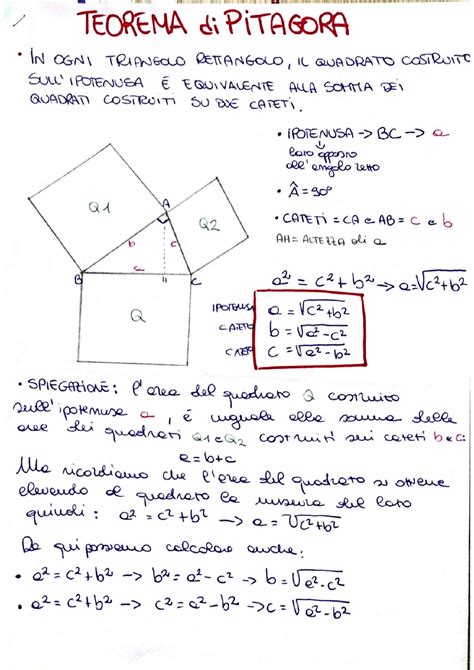 TEOREMA di PITAGORA
• IN OGNI TRIANGOLO RETTANGOLO, IL QUADRATO COSTRUITO
SULL'IPOTENUSA È EQUIVALENTE ALLA SOMMA DEI
QUADRATI COSTRUITI SU DUE CATETI.
• IPOTENUSA → BC → a
↓
lato opposto
all'angolo retto
• Â = 90°
• CATETI = CA e AB = c e b
AH = ALTEZZA di a
Q1
A
Q2
b
c
a
B
H
C
Q
a² = c² + b² → a = √c² + b²
IPOTENUSA a = √c² + b²
CATETO b = √a² - c²
CATETO c = √a² - b²
• SPIEGAZIONE: l'area del quadrato Q costruito
sull'ipotenusa a, è uguale alla somma delle
aree dei quadrati Q1 e Q2 costruiti sui cateti b e c:
a = b + c
Ma ricordiamo che l'area del quadrato si ottiene
elevando al quadrato la misura del lato
quindi: a² = c² + b² → a = √c² + b²
Da qui possiamo calcolare anche:
• a² = c² + b² → b² = a² - c² → b = √a² - c²
• a² = c² + b² → c² = a² - b² → c = √a² - b²